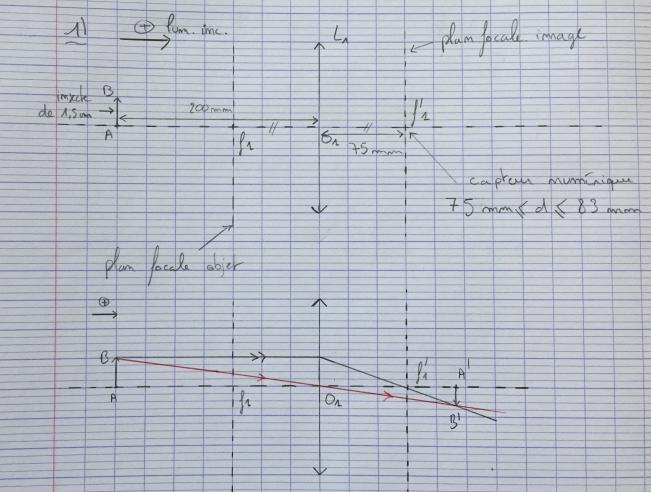 1) ⊕ lum. inc.
L₁
plan focale image
B
insecte
de 1,5 cm
200 mm
A
f₁
O₁
f'₁
75 mm
capteur numérique
75 mm ≤ d ≤ 83 mm
plan focale objet
⊕
B
A
f₁
O₁
f'₁
A'
B'